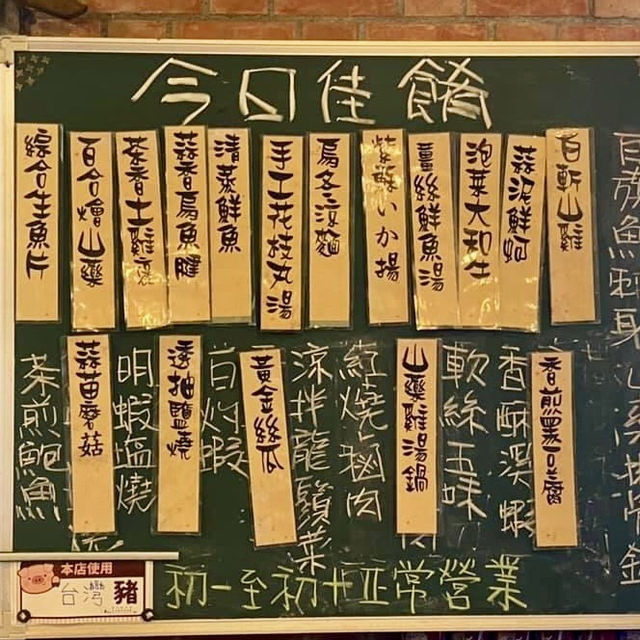 今日佳餚
白斬山雞
蒜泥鮮蚵
泡菜大和牛
薑絲鮮魚湯
紫蘇いか揚
烏冬涼麵
手工花枝丸湯
清蒸鮮魚
蒜香烏魚腱
茶香土雞
百合燴山藥
綜合生魚片
香煎黑豆腐
香酥溪蝦
軟絲五味
山藥雞湯鍋
紅燒滷肉
涼拌龍鬚菜
黃金絲瓜
白灼蝦
透抽鹽燒
明蝦塩燒
蒜苗蘑菇
茶煎鮑魚
初一至初十正常營業
本店使用
台灣豬